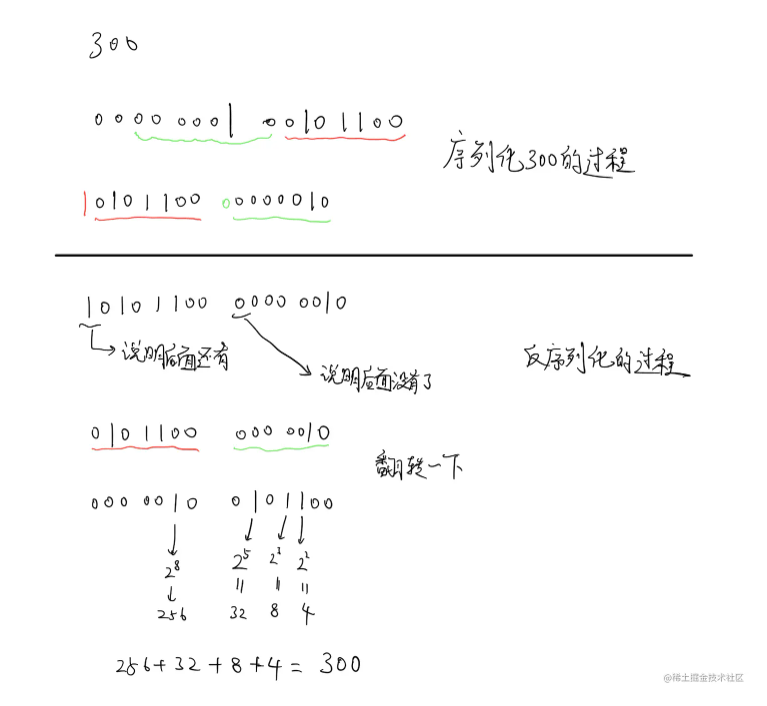 300
0000 0001 00101100
序列化300的过程
10101100 00000010
10101100 0000 0010
说明后面还有
说明后面没有了
反序列化的过程
0101100 000 0010
翻转一下
000 0010 0101100
2⁸ 2⁵ 2³ 2²
↓ = = =
256 32 8 4
256+32+8+4= 300
@稀土掘金技术社区